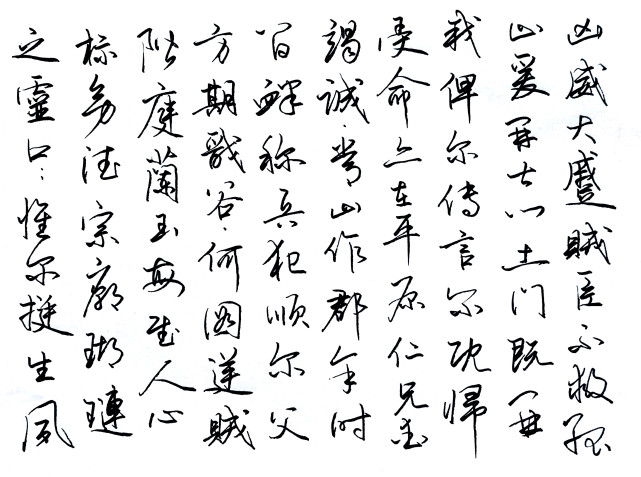 之靈曰:惟尔挺生夙
标幼德宗廟瑚璉
階庭蘭玉每慰人心
方期戩谷·何圖逆賊
间衅称兵犯順尔父
竭誠·常山作郡余时
受命亦在平原仁兄爱
我俾尔传言尔既歸
止爰开土门土门既开
凶威大蹙賊臣不救孤